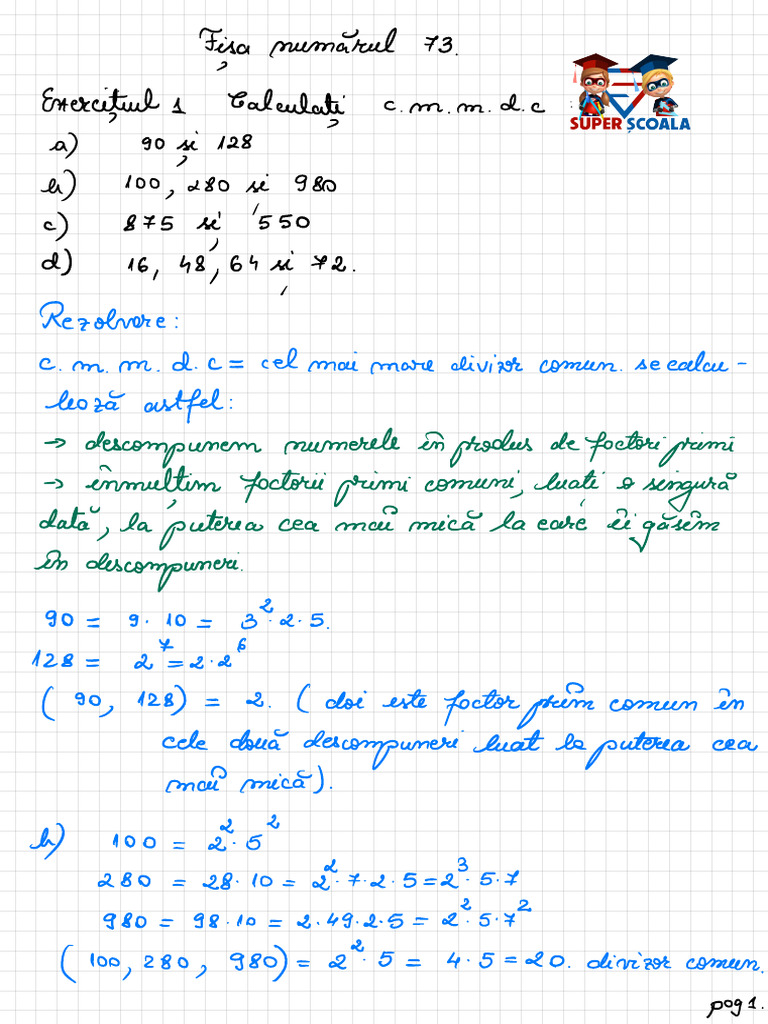 Fișa numărul 73.
SUPER ȘCOALA
Exercițiul 1 Calculați c.m.m.d.c :
a) 90 și 128
b) 100, 280 și 980
c) 875 și 550
d) 16, 48, 64 și 72.
Rezolvare:
c.m.m.d.c = cel mai mare divizor comun. se calcu-
lează astfel:
→ descompunem numerele în produs de factori primi
→ înmulțim factorii primi comuni, luati o singură
dată, la puterea cea mai mică la care îi găsim
în descompuneri.
90 = 9·10 = 3²·2·5.
128 = 2⁷ = 2·2⁶
(90, 128) = 2. (doi este factor prim comun în
cele două descompuneri luat la puterea cea
mai mică).
b) 100 = 2²·5²
280 = 28·10 = 2²·7·2·5 = 2³·5·7
980 = 98·10 = 2·49·2·5 = 2²·5·7²
(100, 280, 980) = 2²·5 = 4·5 = 20. divizor comun.
pag 1.